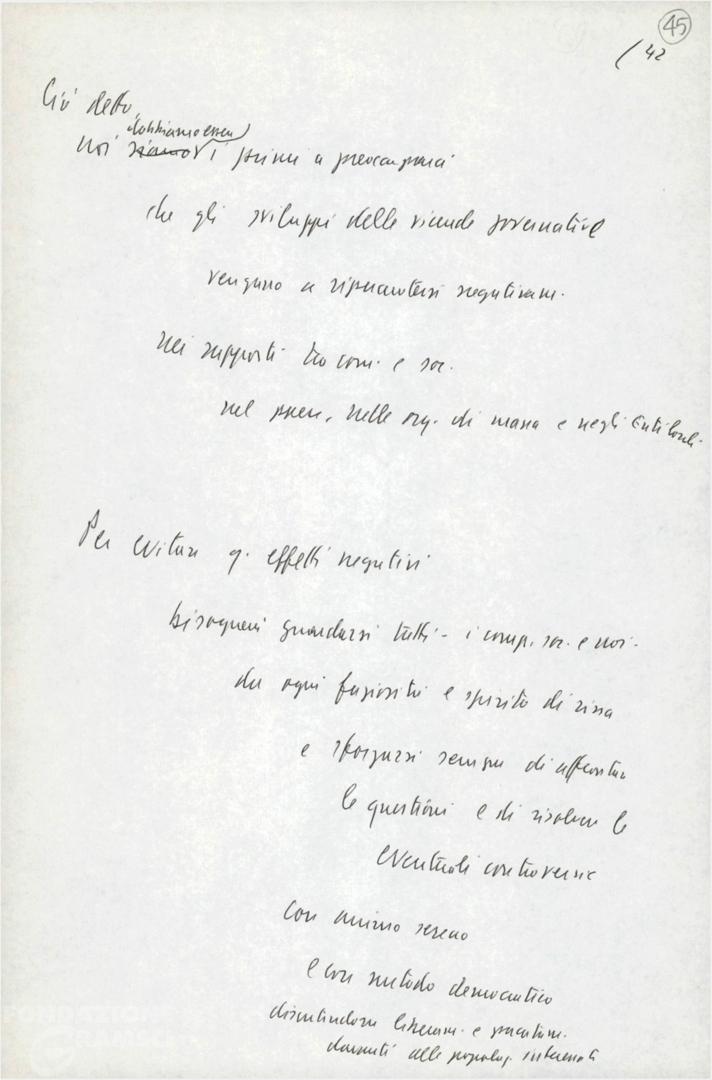 45
42
Ciò detto
dobbiamo essere
noi siamo i primi a preoccuparci
che gli sviluppi delle vicende governative
vengano a ripercuotersi negativam.
nei rapporti tra com. e soc.
nel paese, nelle org. di massa e negli Enti locali.
Per evitare q. effetti negativi
bisogna guardarsi tutti - i comp. soc. e noi -
da ogni faziosità e spirito di rissa
e sforzarsi sempre di affrontare
le questioni e di risolvere le
eventuali controversie
con animo sereno
e con metodo democratico
discutendone liberam. e pacatam.
davanti alle popolaz. interessate
FONDAZIONE
GRAMSCI